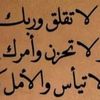 لا تقلق وربك
لا تحزن وأمرك
لا تيأس والأمل